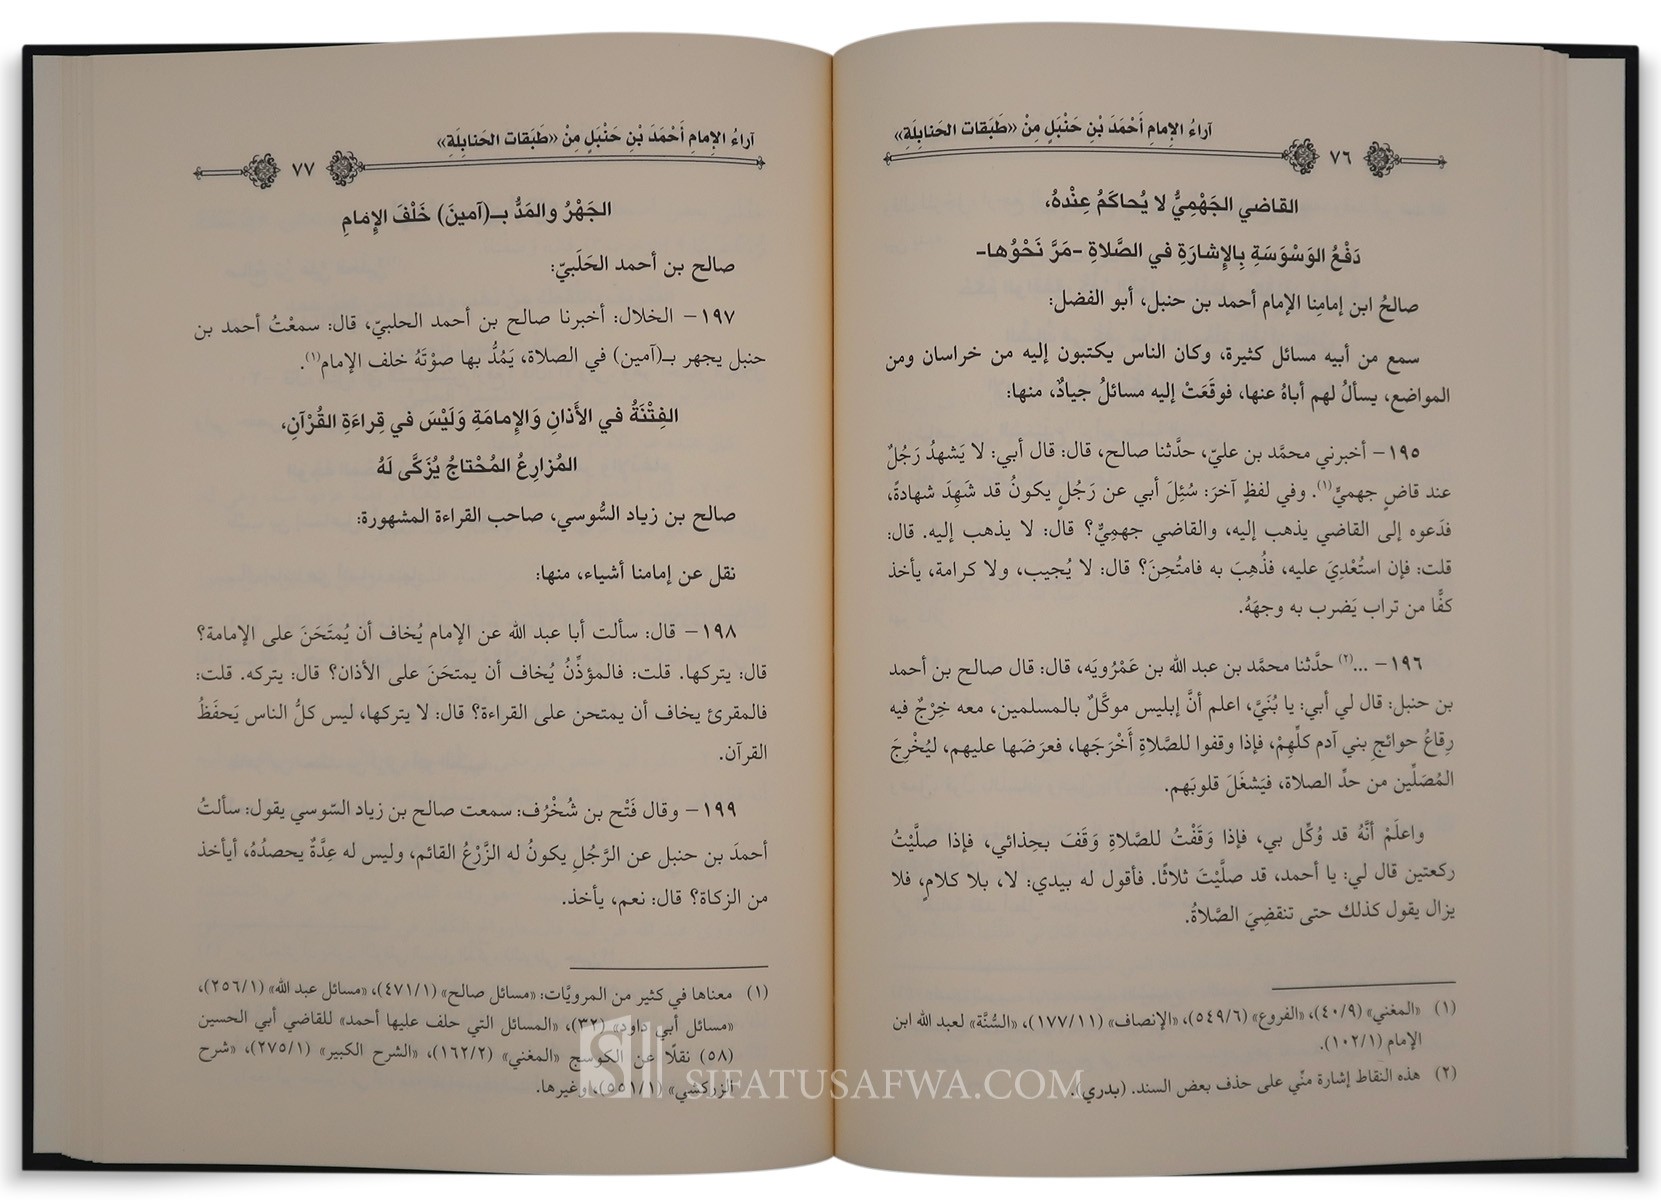 آراءُ الإمامِ أَحْمَدَ بْنِ حَنْبَلٍ مِنْ «طَبَقات الحَنابِلَةِ»
٧٦
القاضي الجَهْمِيُّ لا يُحاكَمُ عِنْدهُ،
دَفْعُ الوَسْوَسَةِ بِالإشارَةِ في الصَّلاةِ -مَرَّ نَحْوُها-
صالحُ ابن إمامِنا الإمام أحمد بن حنبل، أبو الفضل:
سمع من أبيه مسائل كثيرة، وكان الناس يكتبون إليه من خراسان ومن
المواضع، يسألُ لهم أباهُ عنها، فوقَعَتْ إليه مسائلُ جيادٌ، منها:
١٩٥ - أخبرني محمَّد بن عليّ، حدَّثنا صالح، قال: قال أبي: لا يَشهدُ رَجُلٌ
عند قاضٍ جهميٍّ(١). وفي لفظٍ آخرَ: سُئِلَ أبي عن رَجُلٍ يكونُ قد شَهِدَ شهادةً،
فدَعوه إلى القاضي يذهب إليه، والقاضي جهمِيٌّ؟ قال: لا يذهب إليه. قال:
قلت: فإن استُعْدِيَ عليه، فذُهِبَ به فامتُحِنَ؟ قال: لا يُجيب، ولا كرامة، يأخذ
كفًّا من تراب يَضرب به وجهَهُ.
١٩٦ - ...(٢) حدَّثنا محمَّد بن عبد الله بن عَمْرُويَه، قال: قال صالح بن أحمد
بن حنبل: قال لي أبي: يا بُنَيَّ، اعلم أنَّ إبليس موكَّلٌ بالمسلمين، معه خِرْجٌ فيه
رِقاعُ حوائجِ بني آدم كلِّهِمْ، فإذا وقفوا للصَّلاةِ أَخْرَجَها، فعرَضَها عليهم، ليُخْرِجَ
المُصَلِّين من حدِّ الصلاة، فيَشغَلَ قلوبَهم.
واعلَمْ أنَّهُ قد وُكِّل بي، فإذا وَقَفْتُ للصَّلاةِ وَقَفَ بحِذائي، فإذا صلَّيْتُ
ركعتين قال لي: يا أحمد، قد صلَّيْتَ ثلاثًا. فأقول له بيدي: لا، بلا كلامٍ، فلا
يزال يقول كذلك حتى تنقضِيَ الصَّلاةُ.
(١) «المغني» (٤٠/٩)، «الفروع» (٥٤٩/٦)، «الإنصاف» (١٧٧/١١)، «السُّنَّة» لعبد الله ابن
الإمام (١٠٢/١).
(٢) هذه النقاط إشارة منّي على حذف بعض السند. (بدري).
آراءُ الإمامِ أَحْمَدَ بْنِ حَنْبَلٍ مِنْ «طَبَقات الحَنابِلَةِ»
٧٧
الجَهْرُ والمَدُّ بـ(آمينَ) خَلْفَ الإمَامِ
صالح بن أحمد الحَلَبيّ:
١٩٧ - الخلال: أخبرنا صالح بن أحمد الحلبيّ، قال: سمعْتُ أحمد بن
حنبل يجهر بـ(آمين) في الصلاة، يَمُدُّ بها صوْتَهُ خلف الإمام(١).
الفِتْنَةُ في الأَذانِ وَالإمامَةِ وَلَيْسَ في قِراءَةِ القُرْآنِ،
المُزارِعُ المُحْتاجُ يُزَكَّى لَهُ
صالح بن زياد السُّوسي، صاحب القراءة المشهورة:
نقل عن إمامنا أشياء، منها:
١٩٨ - قال: سألت أبا عبد الله عن الإمام يُخاف أن يُمتَحَنَ على الإمامة؟
قال: يتركها. قلت: فالمؤذِّنُ يُخاف أن يمتحَنَ على الأذان؟ قال: يتركه. قلت:
فالمقرئ يخاف أن يمتحن على القراءة؟ قال: لا يتركها، ليس كلُّ الناس يَحفَظُ
القرآن.
١٩٩ - وقال فَتْح بن شُخْرُف: سمعت صالح بن زياد السّوسي يقول: سألتُ
أحمدَ بن حنبل عن الرَّجُلِ يكونُ له الزَّرْعُ القائم، وليس له عِدَّةٌ يحصدُهُ، أيأخذ
من الزكاة؟ قال: نعم، يأخذ.
(١) معناها في كثير من المرويَّات: «مسائل صالح» (٤٧١/١)، «مسائل عبد الله» (٢٥٦/١)،
«مسائل أبي داود» (٣٢)، «المسائل التي حلف عليها أحمد» للقاضي أبي الحسين
(٥٨) نقلًا عن الكوسج «المغني» (١٦٢/٢)، «الشرح الكبير» (٢٧٥/١)، «شرح
الزركشي» (٥٥١/١)، وغيرها.
SIFATUSAFWA.COM